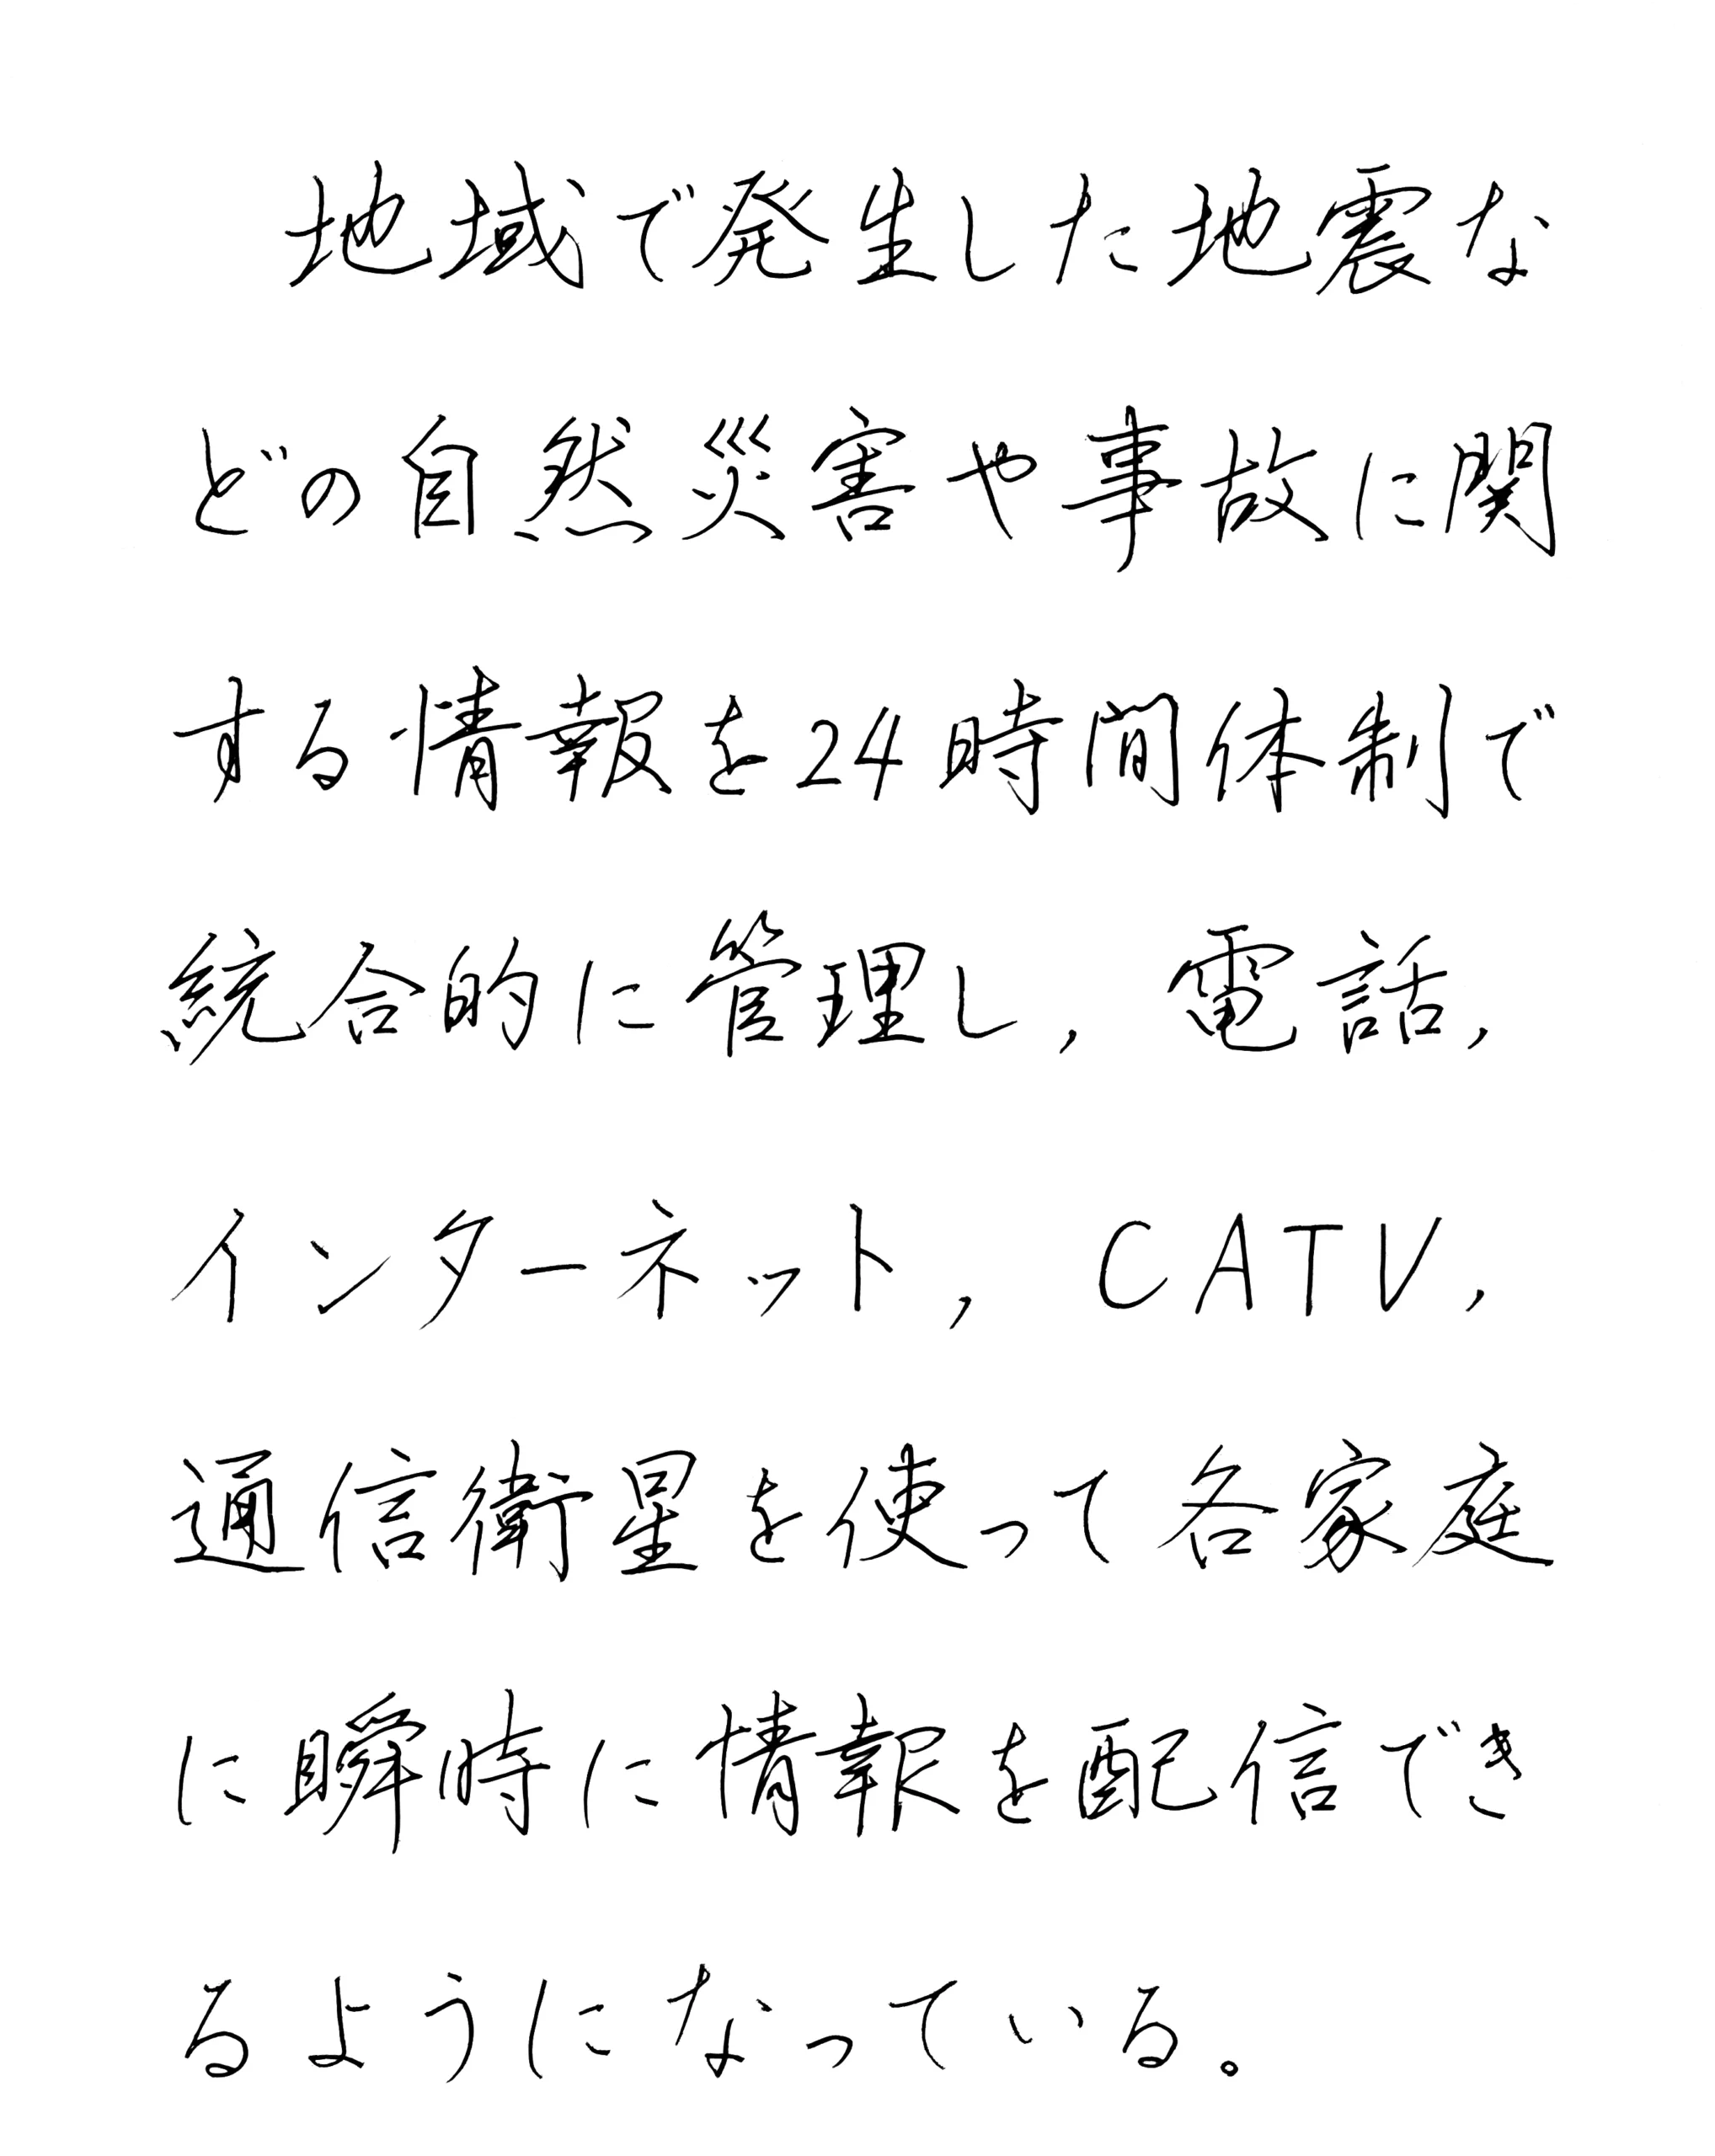 地域で発生した地震な
どの自然災害や事故に関
する情報を24時間体制で
統合的に管理し, 電話,
インターネット, CATV,
通信衛星を使って各家庭
に瞬時に情報を配信でき
るようになっている。